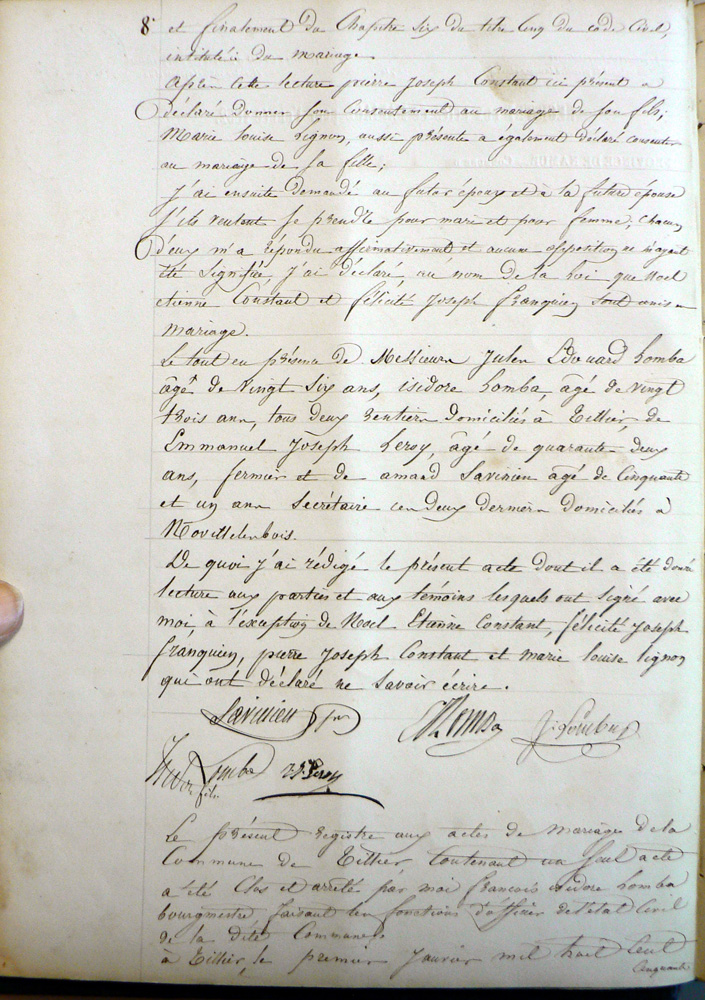 8° et finalement du Chapitre six du titre cinq du code Civil,
intitulé: du mariage
Après cette lecture pierre Joseph Constant ici présent a
déclaré Donner son Consentement au mariage de son fils;
Marie Louise Lignon, aussi présente a également déclaré consentir
au mariage de sa fille;
J'ai ensuite demandé au futur époux et à la future épouse
s'ils veulent se prendre pour mari et pour femme, chacun
d'eux m'a répondu affirmativement et aucune opposition ne m'ayant
été signifiée, J'ai déclaré au nom de la Loi que Noel
etienne Constant et félicité Joseph franquien sont unis en
mariage.
Le tout en présence de Messieurs Jules Edouard Lomba
âgé de vingt six ans, isidore Lomba, agé de vingt
trois ans, tous deux rentiers domiciliés à Tillier, de
Emmanuel Joseph Leroy, âgé de quarante deux
ans, fermier et de amand Savinien agé de Cinquante
et un ans Secrétaire ces deux derniers domiciliés à
Noville les bois.
De quoi j'ai rédigé le présent acte dont il a été donné
lecture aux parties et aux témoins lesquels ont signé avec
moi à l'exception de Noel Etienne Constant, félicité Joseph
franquien, pierre Joseph Constant et marie louise lignon
qui ont déclaré ne savoir écrire.
Savinien
Lomba
fils
Leroy
Le présent registre aux actes de mariages de la
Commune de Tillier, Contenant un seul acte
a été Clos et arrêté par moi françois isidore Lomba
bourgmestre faisant les fonctions d'officier de l'état Civil
de la dite Commune
à Tillier, le premier Janvier mil huit Cent
Cinquante